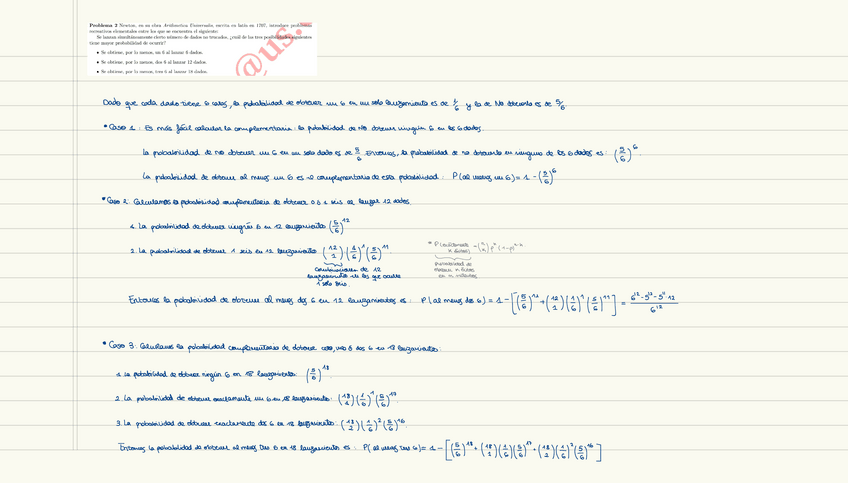 Problema 2 Newton, en su obra Arithmetica Universalis, escrita en latín en 1707, introduce problemas
recreativos elementales entre los que se encuentra el siguiente:
Se lanzan simultáneamente cierto número de dados no trucados, ¿cuál de las tres posibilidades siguientes
tiene mayor probabilidad de ocurrir?
• Se obtiene, por lo menos, un 6 al lanzar 6 dados.
• Se obtiene, por lo menos, dos 6 al lanzar 12 dados.
• Se obtiene, por lo menos, tres 6 al lanzar 18 dados.
@us.
Dado que cada dado tiene 6 caras, la probabilidad de obtener un 6 en un solo lanzamiento es de 1/6 y la de No obtenerlo es de 5/6
• Caso 1: Es más fácil calcular la complementaria: la probabilidad de no obtener ningún 6 en los 6 dados.
La probabilidad de no obtener un 6 en un solo dado es de 5/6. Entonces, la probabilidad de no obtenerlo en ninguno de los 6 dados es: (5/6)^6.
La probabilidad de obtener al menos un 6 es la complementaria de esta probabilidad: P(al menos un 6) = 1 - (5/6)^6
• Caso 2: Calculamos la probabilidad complementaria de obtener 0 ó 1 seis al lanzar 12 dados
1. La probabilidad de obtener ningún 6 en 12 lanzamientos (5/6)^12
2. La probabilidad de obtener 1 seis en 12 lanzamientos (12 1)(1/6)^1(5/6)^11
combinaciones de 12
lanzamientos en los que ocurre
1 solo seis.
* P(exactamente k éxitos) = (n k) p^k (1-p)^n-k
probabilidad de
obtener k éxitos
en n intentos
Entonces la probabilidad de obtener al menos dos 6 en 12 lanzamientos es: P(al menos dos 6) = 1 - [(5/6)^12 + (12 1)(1/6)^1(5/6)^11] = 6^12 - 5^12 - 5^11·12 / 6^12
• Caso 3: Calculamos la probabilidad complementaria de obtener cero, uno ó dos 6 en 18 lanzamientos:
1. La probabilidad de obtener ningún 6 en 18 lanzamientos: (5/6)^18.
2. La probabilidad de obtener exactamente un 6 en 18 lanzamientos: (18 1)(1/6)^1(5/6)^17
3. La probabilidad de obtener exactamente dos 6 en 18 lanzamientos: (18 2)(1/6)^2(5/6)^16
Entonces la probabilidad de obtener al menos tres 6 en 18 lanzamientos es: P(al menos tres 6) = 1 - [(5/6)^18 + (18 1)(1/6)(5/6)^17 + (18 2)(1/6)^2(5/6)^16]